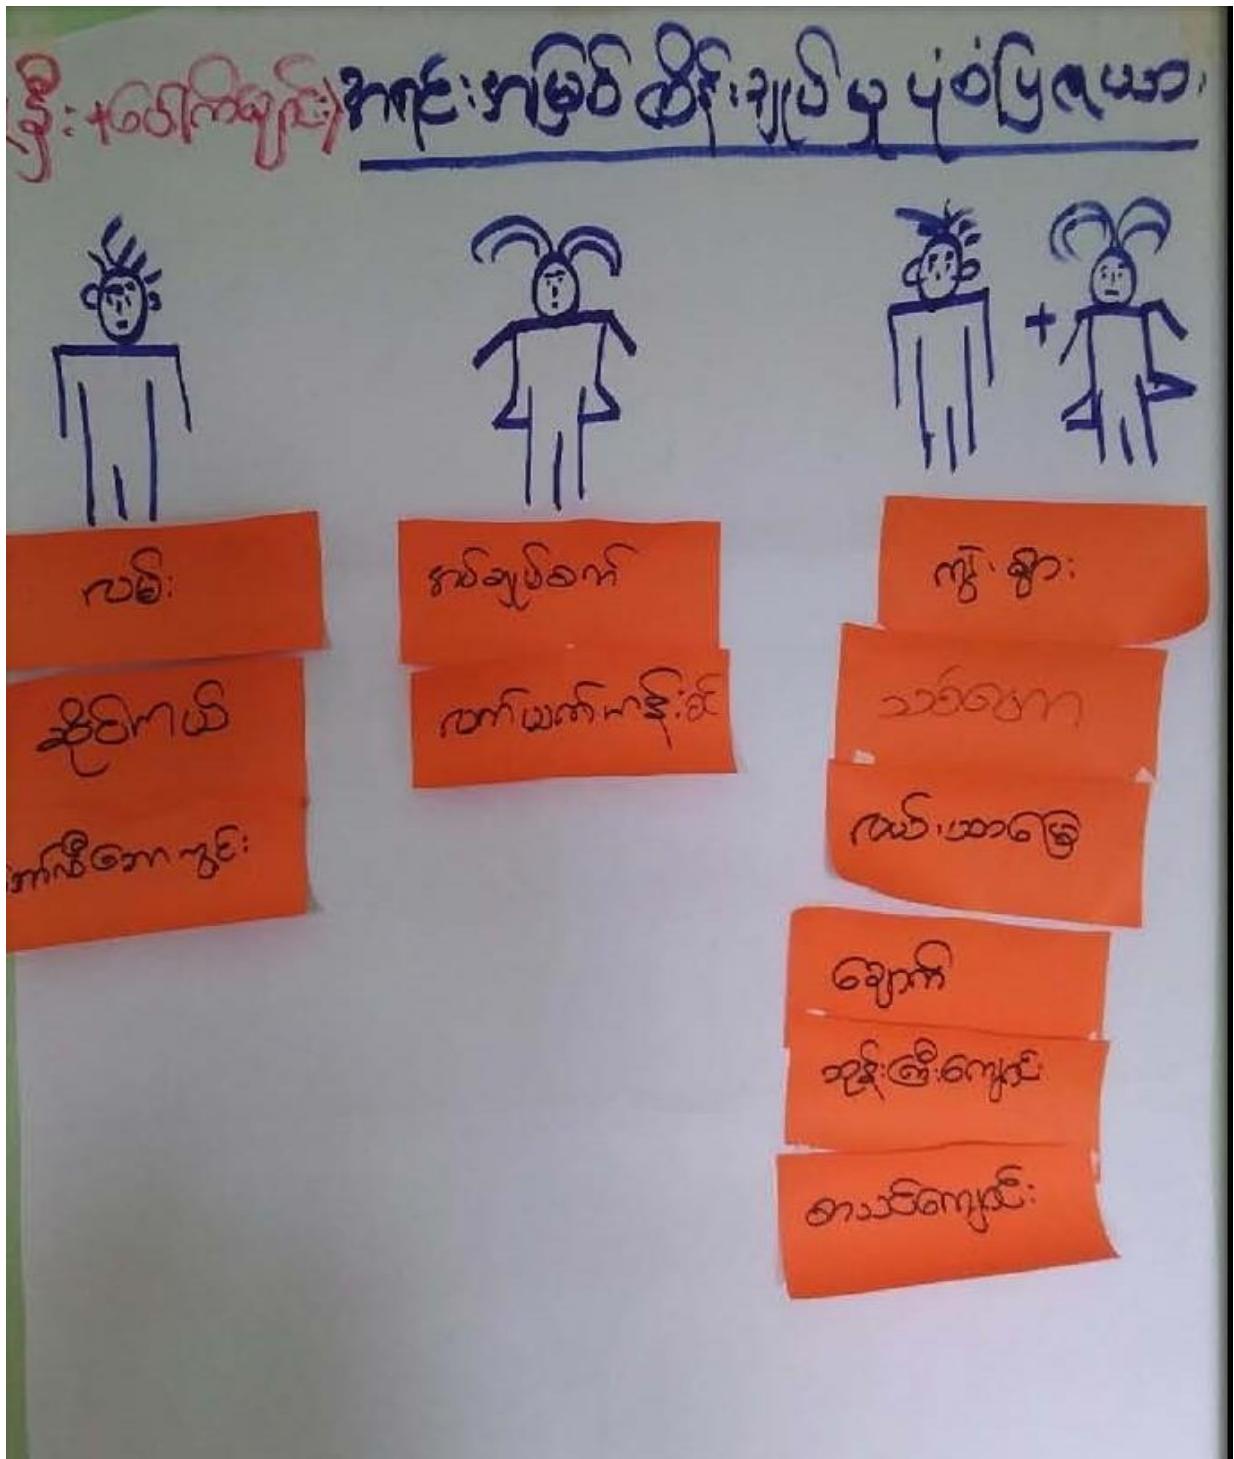 (ဦး+ပေါက်ချင်း) အရင်းအမြစ် ထိန်းချုပ်မှု ပုံစံပြဇယား
လမ်း
ဆိုင်ကယ်
ဘော်လီဘောကွင်း
အပ်ချုပ်စက်
လက်ယက်ကန်းစင်
ကျွဲ၊ နွား
သစ်တော
လယ်၊ယာမြေ
ချောက်
ဘုန်းကြီးကျောင်း
စာသင်ကျောင်း